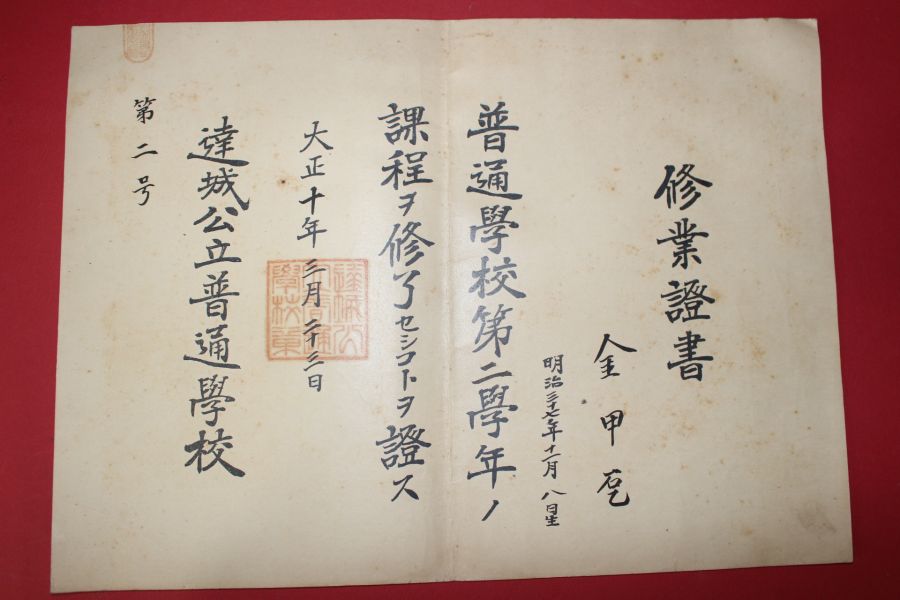 修業證書
金甲乭
明治三十七年十一月八日生
普通學校第二學年ノ
課程ヲ修了セシコトヲ證ス
大正十年三月二十三日
達城公立普通學校
第二号